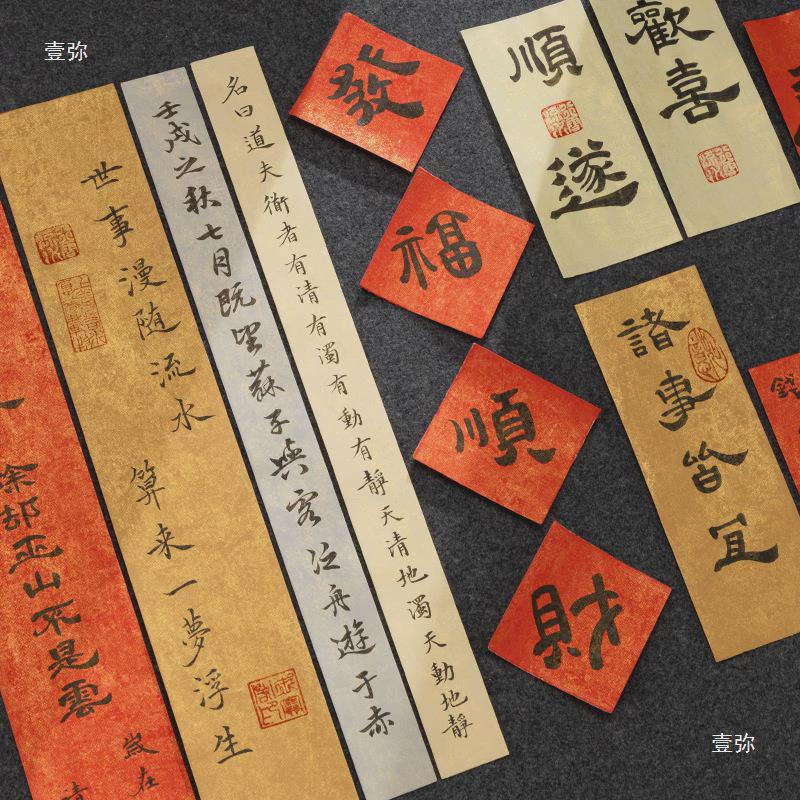 壹弥
名曰道夫衜者有清有濁有動有靜天清地濁天動地靜
壬戌之秋七月既望蘇子與客泛舟遊于赤
世事漫随流水
算来一夢浮生
除却巫山不是雲
歲在
清
發
福
順
財
順遂
歡喜
諸事皆宜
錢
壹弥